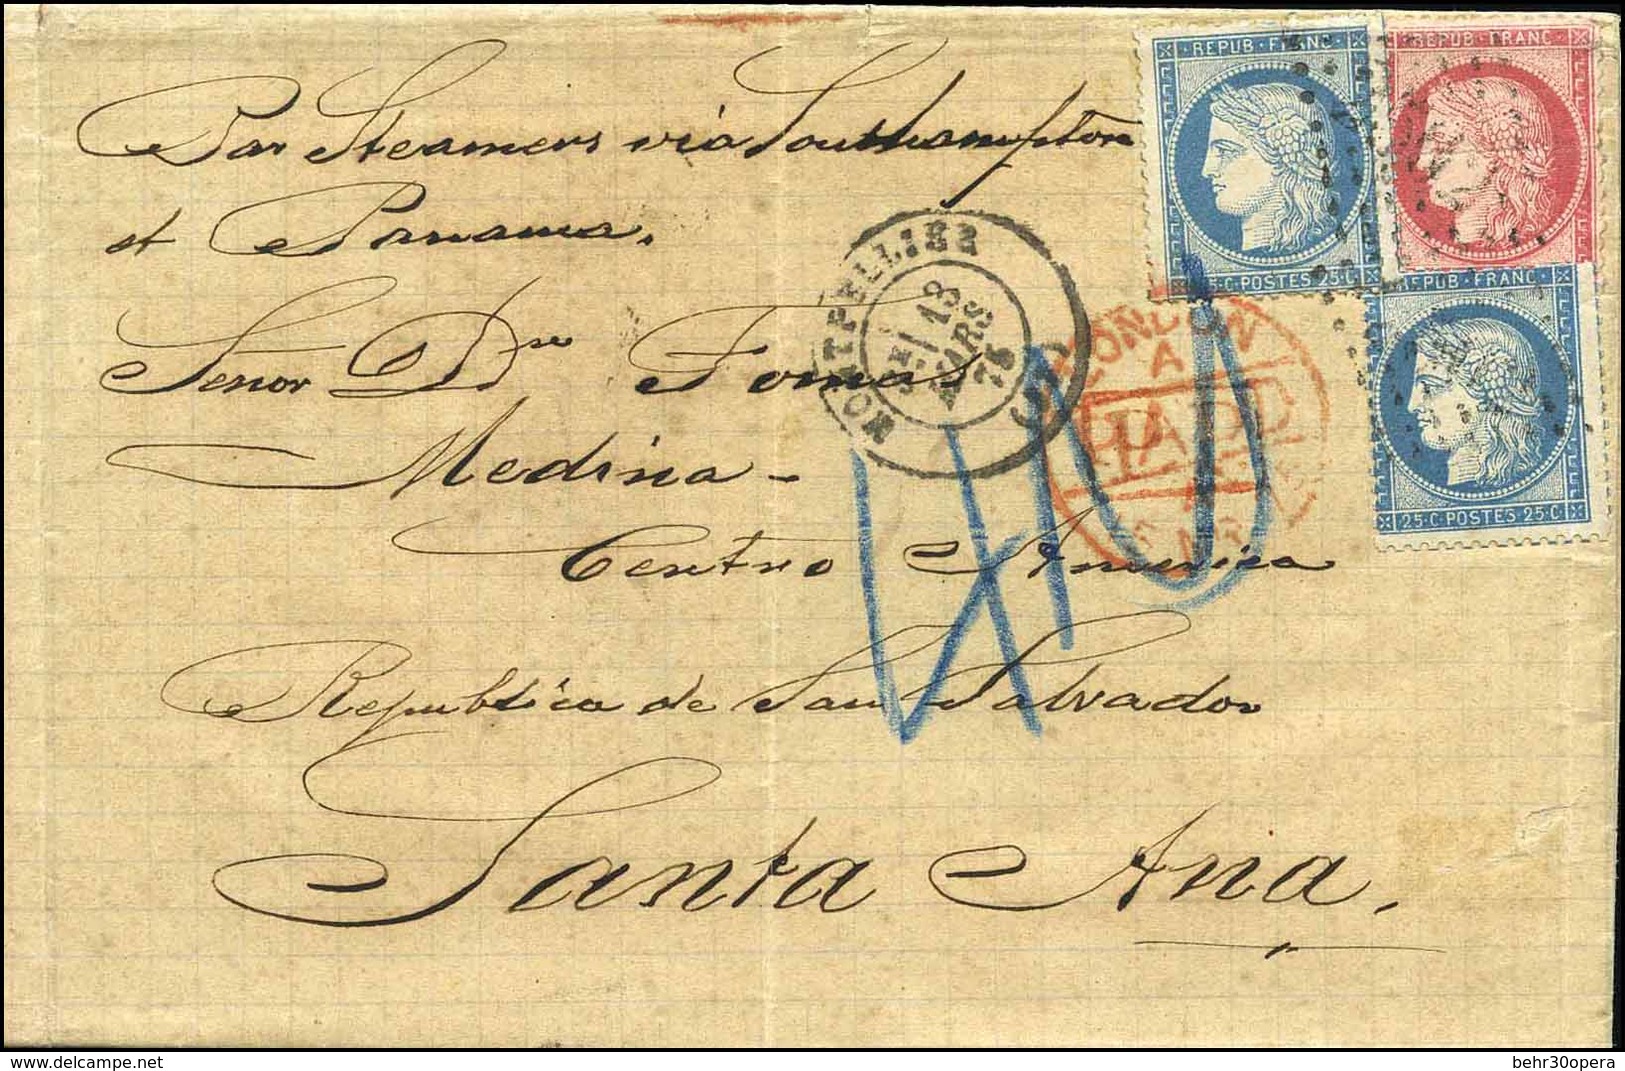 Par Steamers via Southampton
et Panama.
Señor Dr Tomas
Medina -
Centro America
Republica de San Salvador
Santa Ana.
REPUB · FRANC
25·C·POSTES 25·C
REPUB · FRANC
REPUB · FRANC
25·C·POSTES 25·C
MONTPELLIER
13
MARS
75
LONDON
A
PAID
delcampe.net
behr30opera